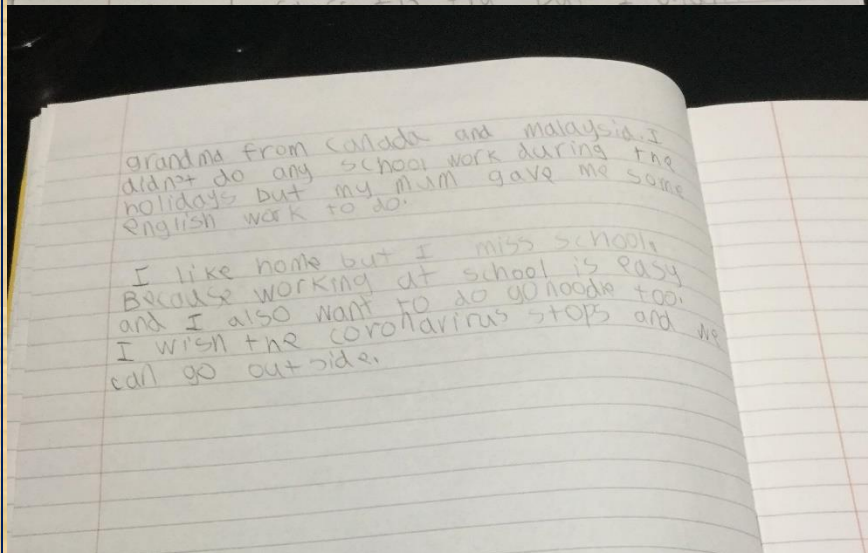 grandma from Canada and malaysia. I
didn't do any school work during the
holidays but my mum gave me some
english work to do.
I like home but I miss school.
Because working at school is easy
and I also want to do gonoodle too.
I wish the coronavirus stops and we
can go outside.